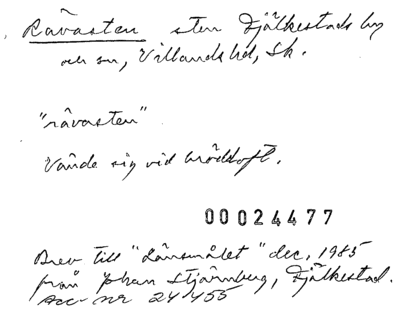 Råvasten sten Fjälkestads by
och sn, Villands hd, Sk.
"råvasten"
Vände sig vid bröddoft.
00024477
Brev till "Länsmålet" dec. 1985
från Johan Stjärnberg, Fjälkestad.
Acc. nr 24455